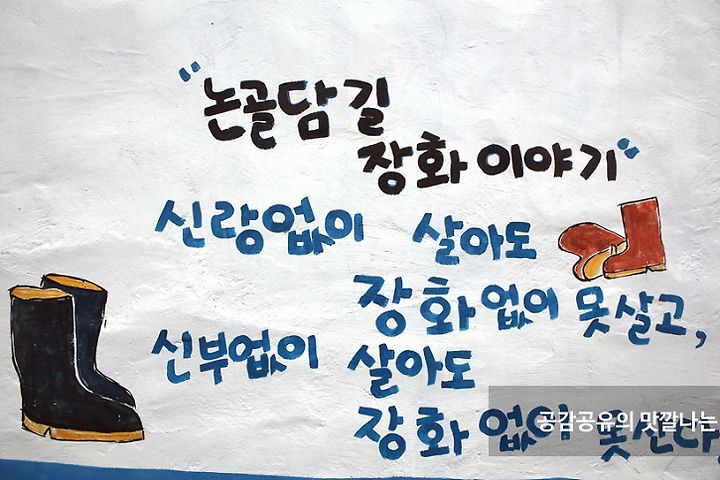 "논골담길
장화 이야기"
신랑없이 살아도
장화 없이 못살고,
신부없이 살아도
장화 없이 못산다.
공감공유의 맛깔나는